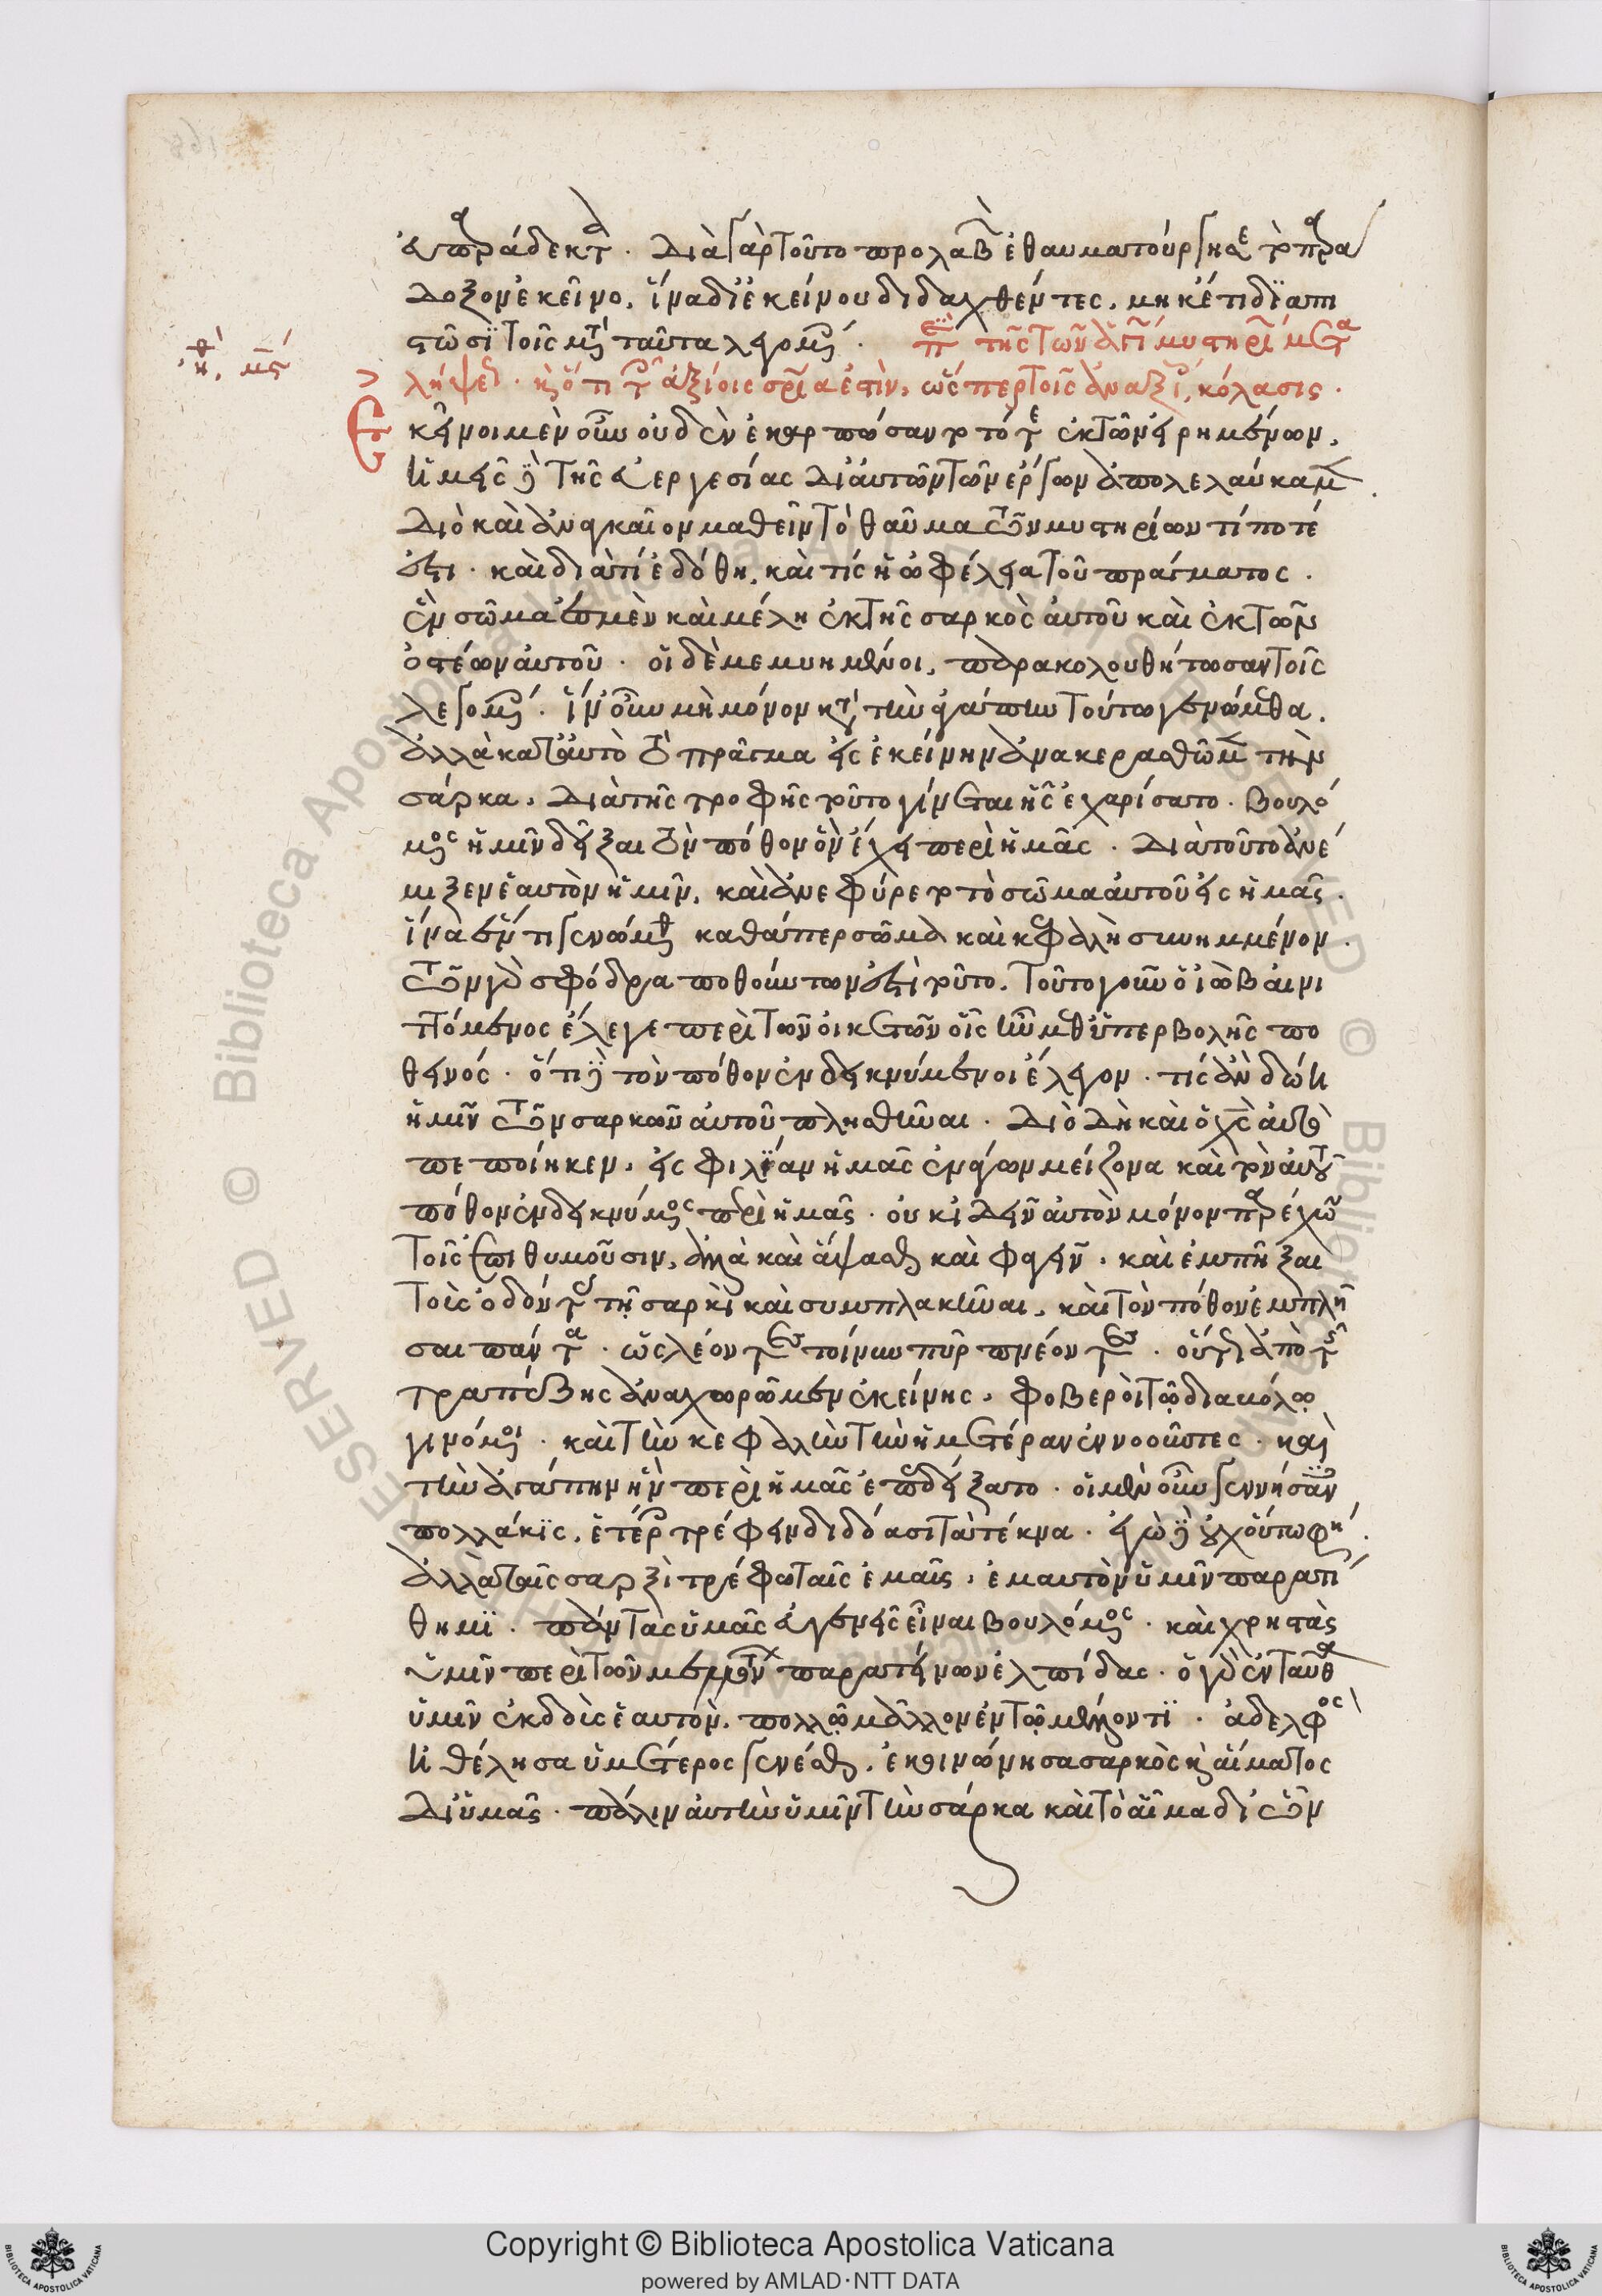 εὐπαράδεκτα. Διὰ γὰρ τοῦτο προλαβὼν ἐθαυματούργησε τὸ παρά
δοξον ἐκεῖνο, ἵνα δι' ἐκείνου διδαχθέντες, μηκέτι διαπι
στῶσι τοῖς μετὰ ταῦτα λεγομένοις. Περὶ τῆς τῶν ἁγίων μυστηρίων μετα
λήψεως. καὶ ὅτι τοῖς ἀξίοις σωτηρία ἐστὶν, ὥσπερ τοῖς ἀναξίοις, κόλασις.
κεῖνοι μὲν οὖν οὐδὲν ἐκαρπώσαντο τότε ἐκ τῶν εἰρημένων,
ἡμεῖς δὲ τῆς εὐεργεσίας δι' αὐτῶν τῶν ἔργων ἀπολελαύκαμεν.
Διὸ καὶ ἀναγκαῖον μαθεῖν τὸ θαῦμα τῶν μυστηρίων τί ποτέ
ἐστι. καὶ διατί ἐδόθη, καὶ τίς ἡ ὠφέλεια τοῦ πράγματος.
ἓν σῶμα ἐσμὲν καὶ μέλη ἐκ τῆς σαρκὸς αὐτοῦ καὶ ἐκ τῶν
ὀστέων αὐτοῦ. οἱ δὲ μεμυημένοι, παρακολουθήτωσαν τοῖς
λεγομένοις. ἵν' οὖν μὴ μόνον κατὰ τὴν ἀγάπην τοῦτο γενώμεθα,
ἀλλὰ κατ' αὐτὸ τὸ πρᾶγμα εἰς ἐκείνην ἀνακερασθῶμεν τὴν
σάρκα, Διὰ τῆς τροφῆς τοῦτο γίνεται ἧς ἐχαρίσατο. Βουλό
μενος ἡμῖν δεῖξαι τὸν πόθον ὃν ἔχει περὶ ἡμᾶς. Διὰ τοῦτο ἀνέ
μιξεν ἑαυτὸν ἡμῖν, καὶ ἀνέφυρε τὸ σῶμα αὐτοῦ εἰς ἡμᾶς.
ἵνα ἕν τι γενώμεθα καθάπερ σῶμα καὶ κεφαλὴ συνημμένον.
τῶν γὰρ σφόδρα ποθούντων ἐστὶ τοῦτο. Τοῦτο γοῦν ὁ ἰὼβ αἰνι
ττόμενος ἔλεγε περὶ τῶν οἰκετῶν οἷς ἦν μεθ' ὑπερβολῆς πο
θεινός. ὅτι δὲ τὸν πόθον ἐνδεικνύμενοι ἔλεγον. τίς ἂν δώη
ἡμῖν τῶν σαρκῶν αὐτοῦ πλησθῆναι. Διὸ Δὴ καὶ ὁ χς αὐτὸ
πεποίηκεν, εἰς φιλίαν ἡμᾶς ἐνάγων μείζονα καὶ τὸν αὐτοῦ
πόθον ἐνδεικνύμενος περὶ ἡμᾶς. οὐκ ἰδεῖν αὐτὸν μόνον παρέσχε
τοῖς ἐπιθυμοῦσιν, ἀλλὰ καὶ ἅψασθαι καὶ φαγεῖν, καὶ ἐμπῆξαι
τοὺς ὀδόντας τῇ σαρκὶ καὶ συμπλακῆναι, καὶ τὸν πόθον ἐμπλῆ
σαι πάντα. ὡς λέοντες τοίνυν πῦρ πνέοντες. οὕτως ἀπὸ τῆς
τραπέζης ἀναχωρῶμεν ἐκείνης, φοβεροὶ τῷ διαβόλῳ
γινόμενοι. καὶ τὴν κεφαλὴν τὴν ἡμετέραν ἐννοοῦντες. καὶ
τὴν ἀγάπην ἣν περὶ ἡμᾶς ἐπεδείξατο. οἱ μὲν οὖν γεννήσαντες
πολλάκις, ἑτέροις τρέφειν διδόασι τὰ τέκνα. ἐγὼ δὲ οὐχ οὕτω φησί.
ἀλλὰ ταῖς σαρξὶ τρέφω ταῖς ἐμαῖς, ἐμαυτὸν ὑμῖν παρατί
θημι. πάντας ὑμᾶς εὐγενεῖς εἶναι βουλόμενος. καὶ χρηστὰς
ὑμῖν περὶ τῶν μελλόντων παρατείνων ἐλπίδας. ὁ γὰρ ἐνταῦθα
ὑμῖν ἐκδοὺς ἑαυτόν, πολλῷ μᾶλλον ἐν τῷ μέλλοντι. ἀδελφὸς
ἠθέλησα ὑμέτερος γενέσθαι, ἐκοινώνησα σαρκὸς καὶ αἵματος
Δι' ὑμᾶς. πάλιν αὐτὴν ὑμῖν τὴν σάρκα καὶ τὸ αἷμα δι' ὧν